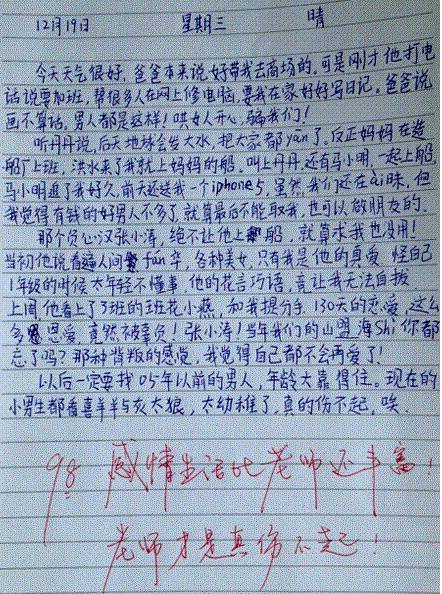 12月19日 星期三 晴
今天天气很好,爸爸本来说好带我去商场的。可是刚才他打电
话说要加班,帮很多人在网上修电脑,要我在家好好写日记。爸爸说
画不算话,男人都是这样!哄女人开心,骗我们!
听丹丹说,后天地球会发大水,把大家都yān了。反正妈妈在造
船厂上班,洪水来了我就上妈妈的船。叫上丹丹还有马小明,一起上船。
马小明追了我好久,前天还送我一个iphone5,虽然我们还在ài昧,但
我觉得有钱的好男人不多了,就算最后不能取我,也可以做朋友的。
那个负心汉张小涛,绝不让他上船,就算求我也没用!
当初他说看遍人间fán华,各种美女,只有我是他的真爱,怪自己
1年级的时候太年轻不懂事,他的花言巧语,竟让我无法自拔
上周他看上了3班的班花小燕,和我提分手。130天的恋爱,这么
多恩爱,竟然被辜负!张小涛!当年我们的山盟海Shi你都
忘了吗?那种背叛的感觉,我觉得自己都不会再爱了!
以后一定要找05年以前的男人,年龄大靠得住。现在的
小男生都看喜羊羊与灰太狼,太幼稚了,真的伤不起,唉。
98 感情生活比老师还丰富!
老师才是真伤不起!